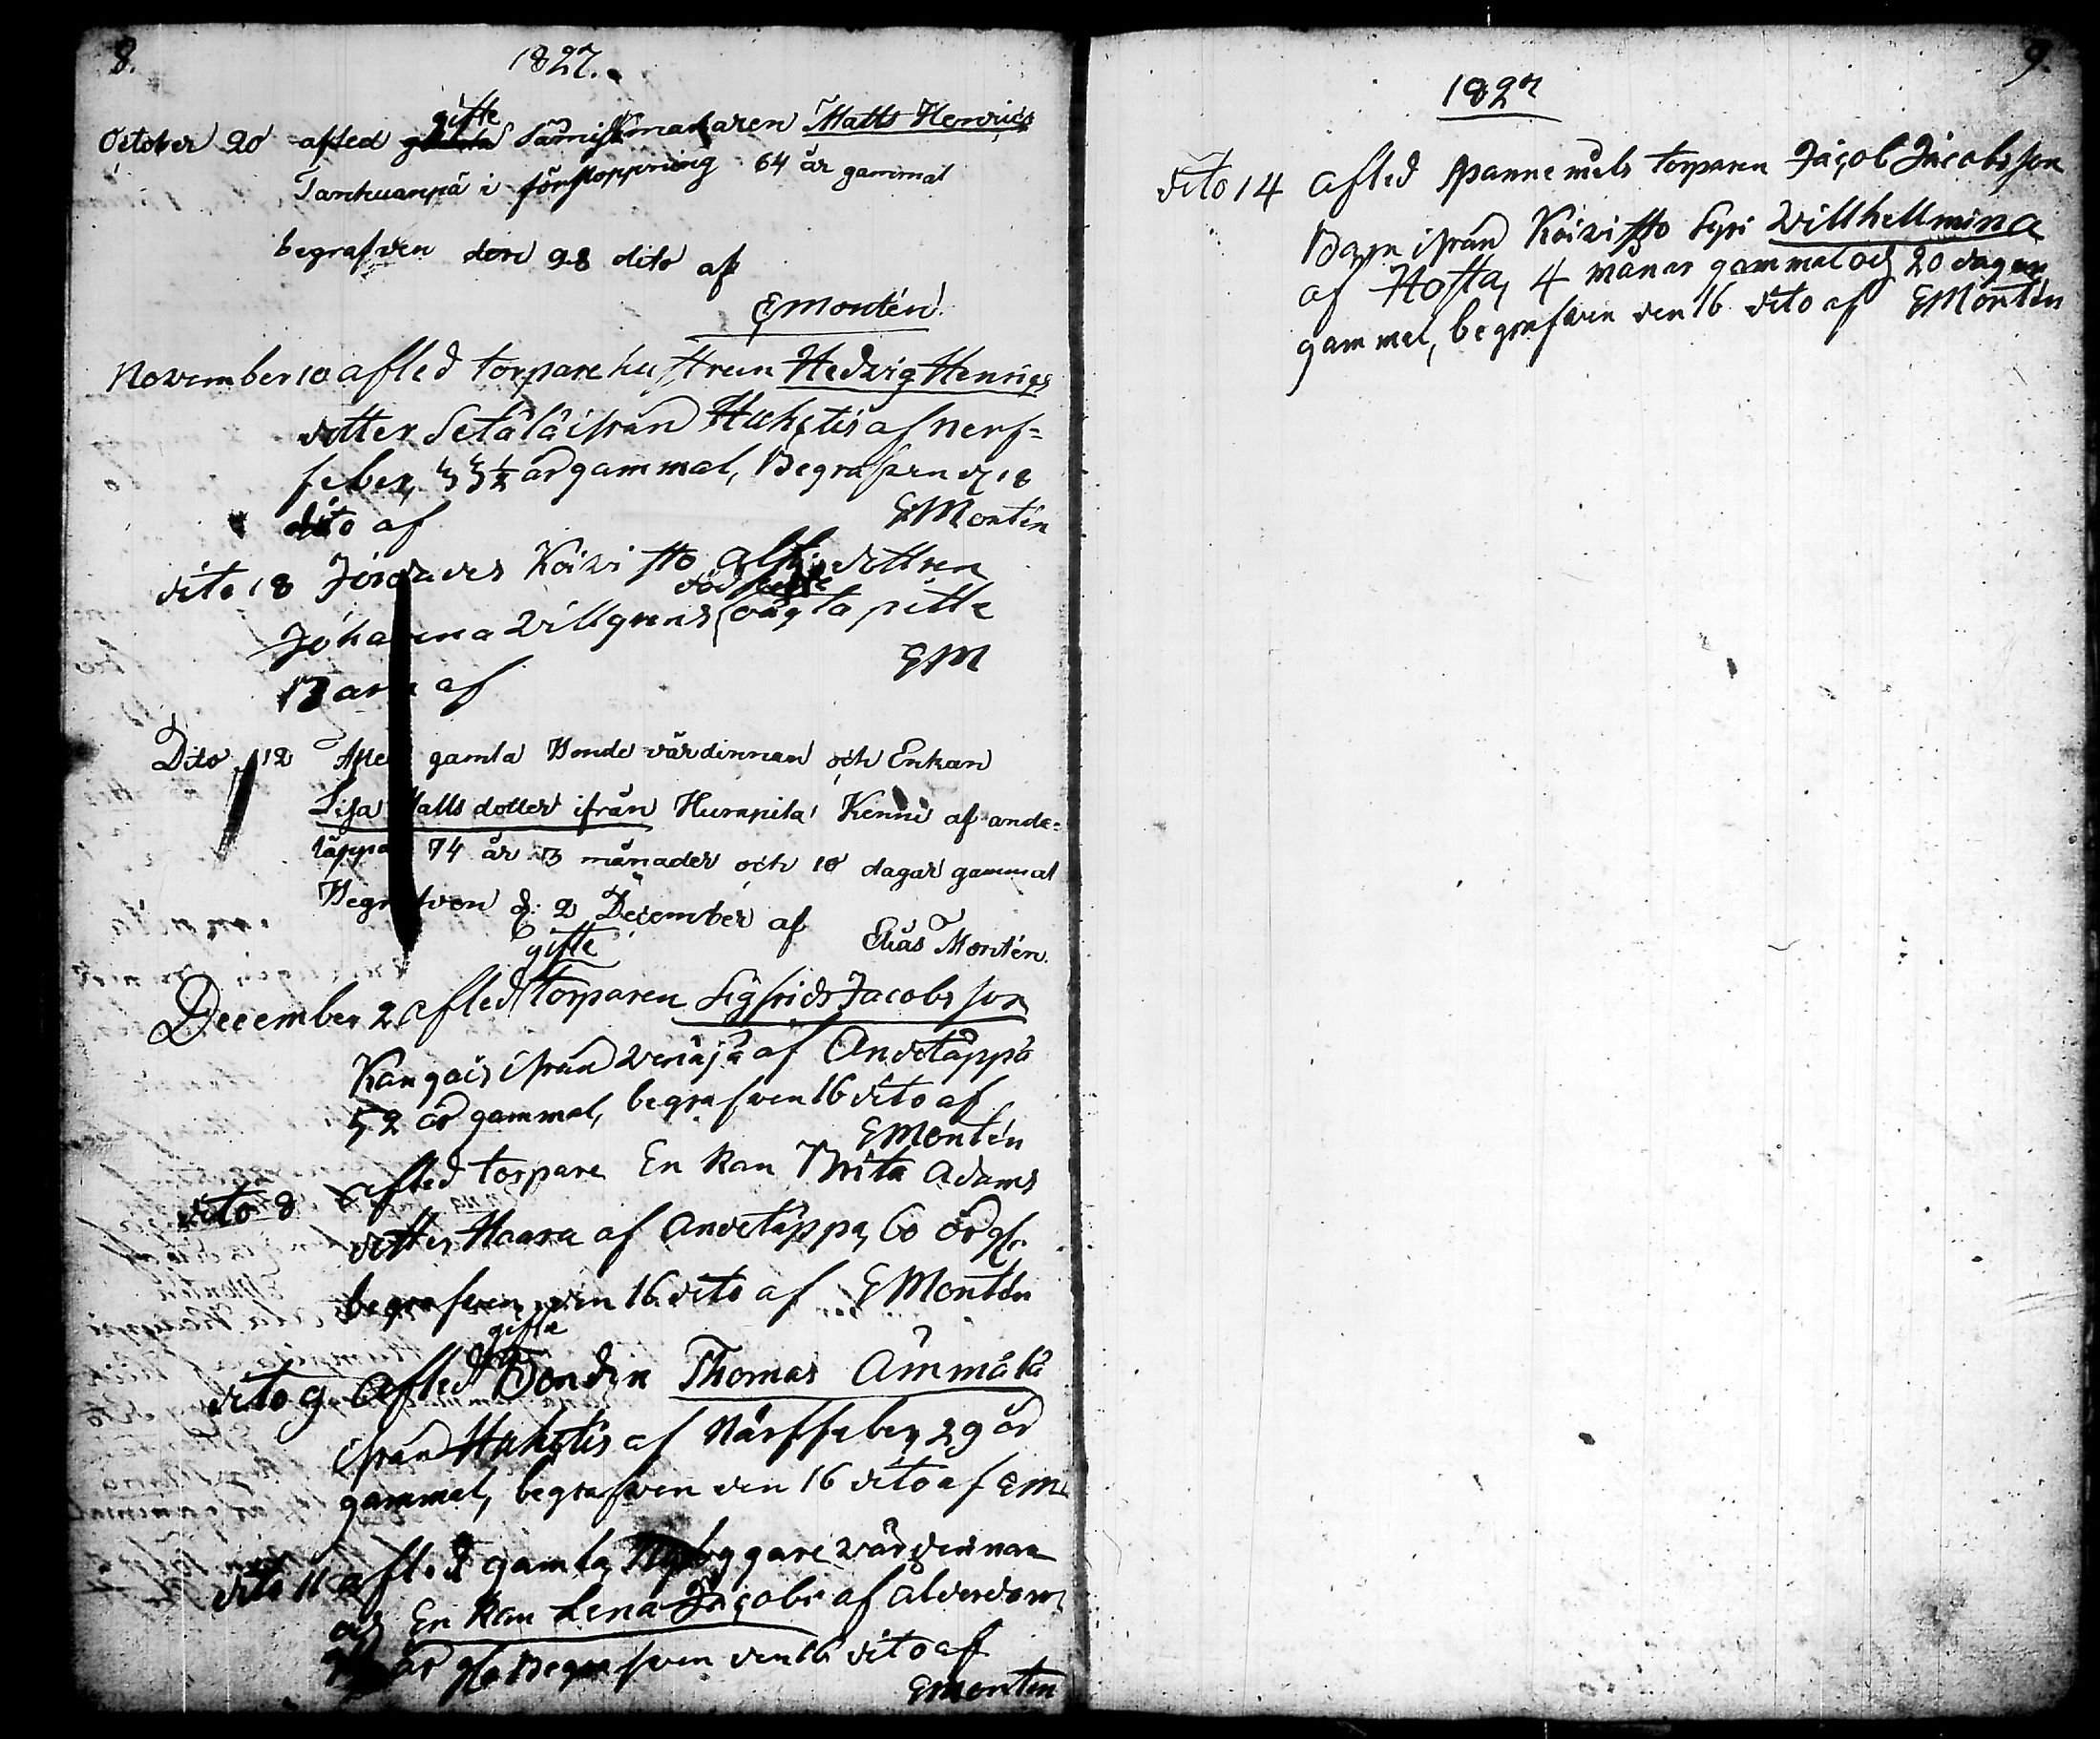 8.
1827.
gifte
October 20 afled gamla Sämiskmakaren Matts Henrics
Tarckuanpä i förstoppning 64 år gammal
begrafven den 28 dito af
EMontén
November 10 afled torpare hustrun Hedvig Henrics
dotter Setälä ifrån Huhtis af nerf=
feber, 33½ år gammal, Begrafven d. 18
dito af EMontén
dito 18 Jordades Koivisto
död
Johanna Villgrens oägta
Barn af EM
Dito 12 Afled gamla Bonde värdinnan och Enkan
Lisa Matts dotter ifrån Hurnpila Kenni af ande=
täppa 74 år 3 månader och 10 dagar gammal
Begrafven d: 2 December af Elias Montén.
gifte
December 2 afled torparen Sigfrids Jacobs son
Kangais ifrån Venäjä af Andetäppa
52 år gammal, begrafven 16 dito af
EMontén
dito 8 afled torpare Enkan Brita Adams
dotter Haara af Andetäppa, 60 år gl.
begrafven den 16 dito af EMontén
gifta
dito 9 Afled Bonden Thomas Ämmälä
ifrån Huhtis af Närffeber, 29 år
gammal, begrafven den 16 dito af EM
dito 11 afled gamla Nybyggare värdinnan
och Enkan Lena Jacobs af ålderdom
år gl. Begrafven den 16 dito af
EMonten
9.
1827
dito 14 afled Spannemåls torparen Jacob Jacobsson
Barn ifrån Koivisto Villhellmina
af Hosta, 4 månar gammal och 20 dagar
gammal, begrafven den 16 dito af EMontén